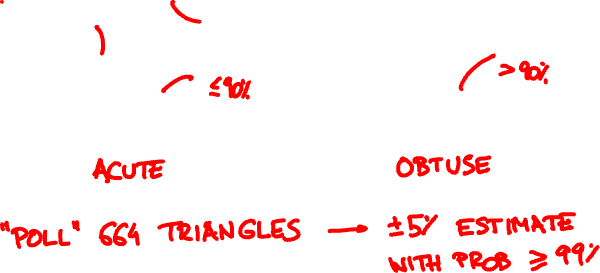 ≤90% >90%
ACUTE OBTUSE
"POLL" 664 TRIANGLES → ±5% ESTIMATE
WITH PROB ≥ 99%